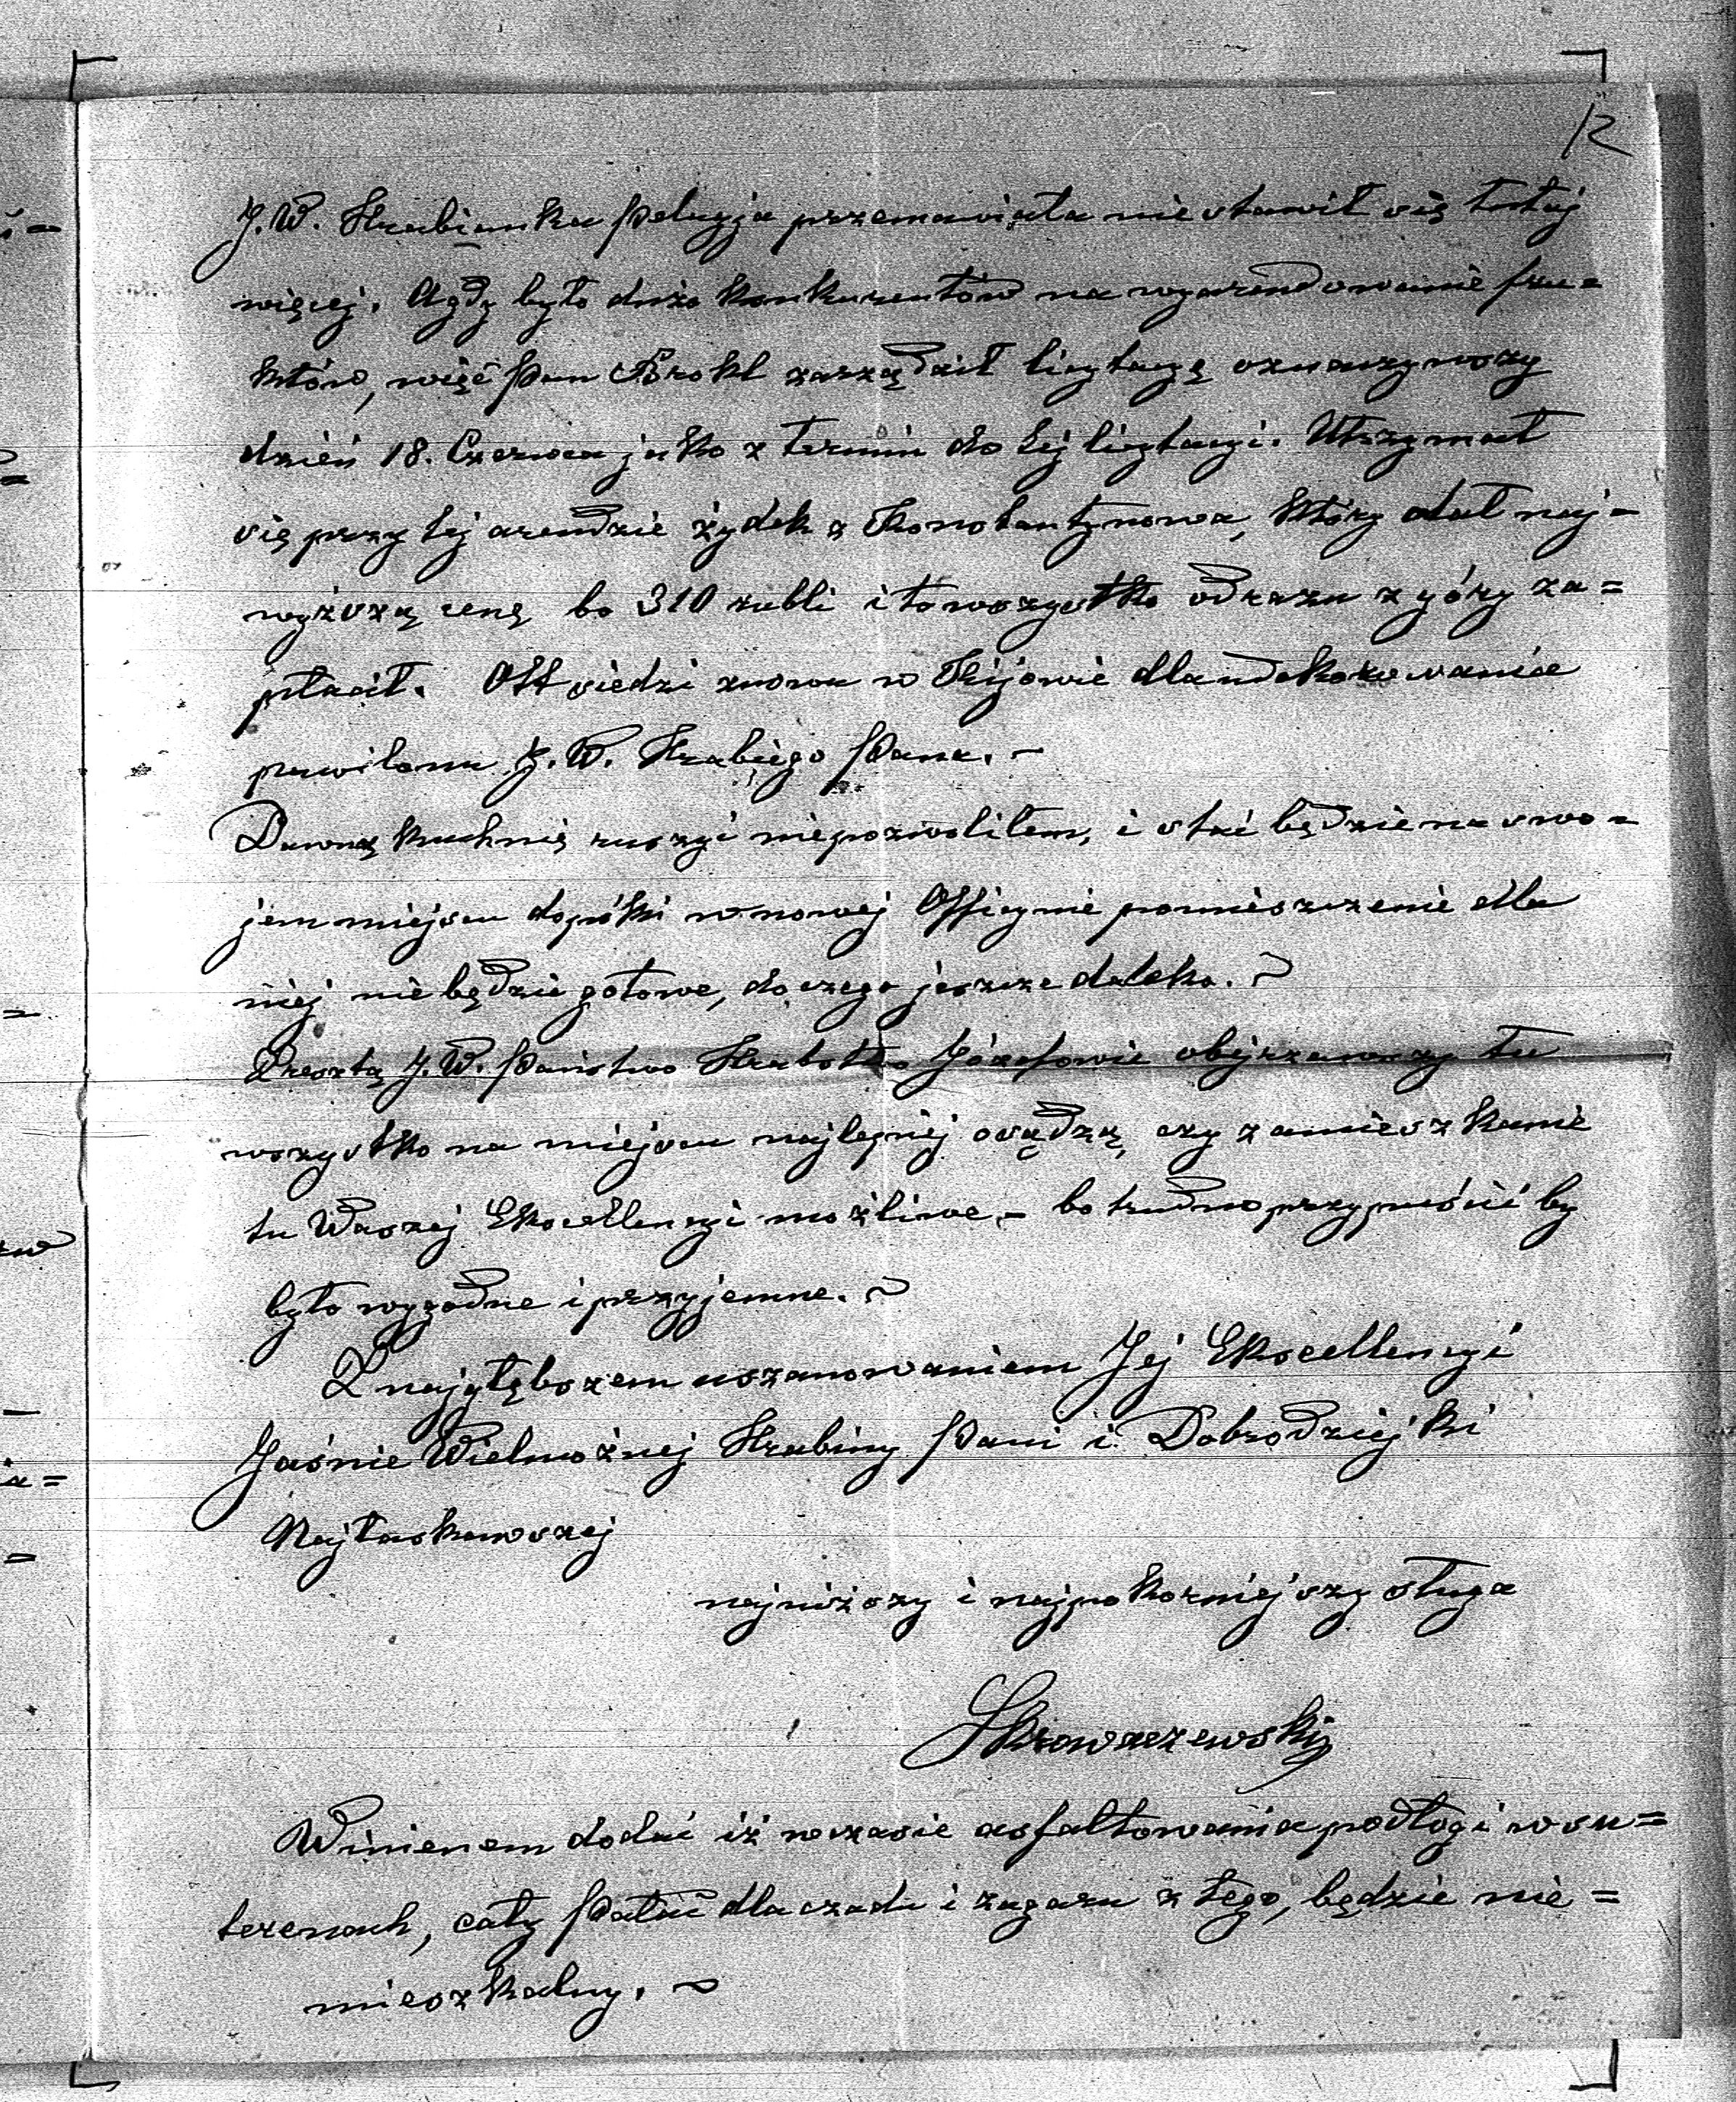 12
J. W. Hrabianka Pelagja przemawiała nie stawił się tutaj
więcej. A gdy było dużo konkurentów na wyarendowanie fru-
któw, więc Pan Brokl zarządził licytacyę oznaczywszy
dzień 18. Czerwca jako z termin do tej licytacyi. Utrzymał
się przy tej arendzie żydek z Konstantynowa, który dał naj-
wyższą cenę bo 310 rubli i to wszystko odrazu z góry za=
płacił. Ott siedzi znowu w Kijowie dla udekorowania
pawilonu J. W. Hrabiego Pana. -
Dawną kuchnię ruszyć niepozwoliłem, i stać będzie na swo-
jem miejscu dopóki w nowej Officynie pomieszczenie dla
niej nie będzie gotowe, do czego jeszcze daleko. ~
Zresztą J. W. Państwo Hrabstwo Józefowie obejrzawszy tu
wszystko na miejscu najlepiej osądzą, czy zamieszkanie
tu Waszej Ekscellencyi możliwe, - bo trudno przypuścić by
było wygodne i przyjemne. ~
Z najgłębszem uszanowaniem Jej Ekscellencyi
Jaśnie Wielmożnej Hrabiny Pani i Dobrodziejki
Najłaskawszej
najniższy i najpokorniejszy sługa
Skrowaczewski
Winienem dodać iż w czasie asfaltowania podłogi w su=
terenach, cały Pałac dla czadu i zagaru z tego, będzie nie=
mieszkalny. ~